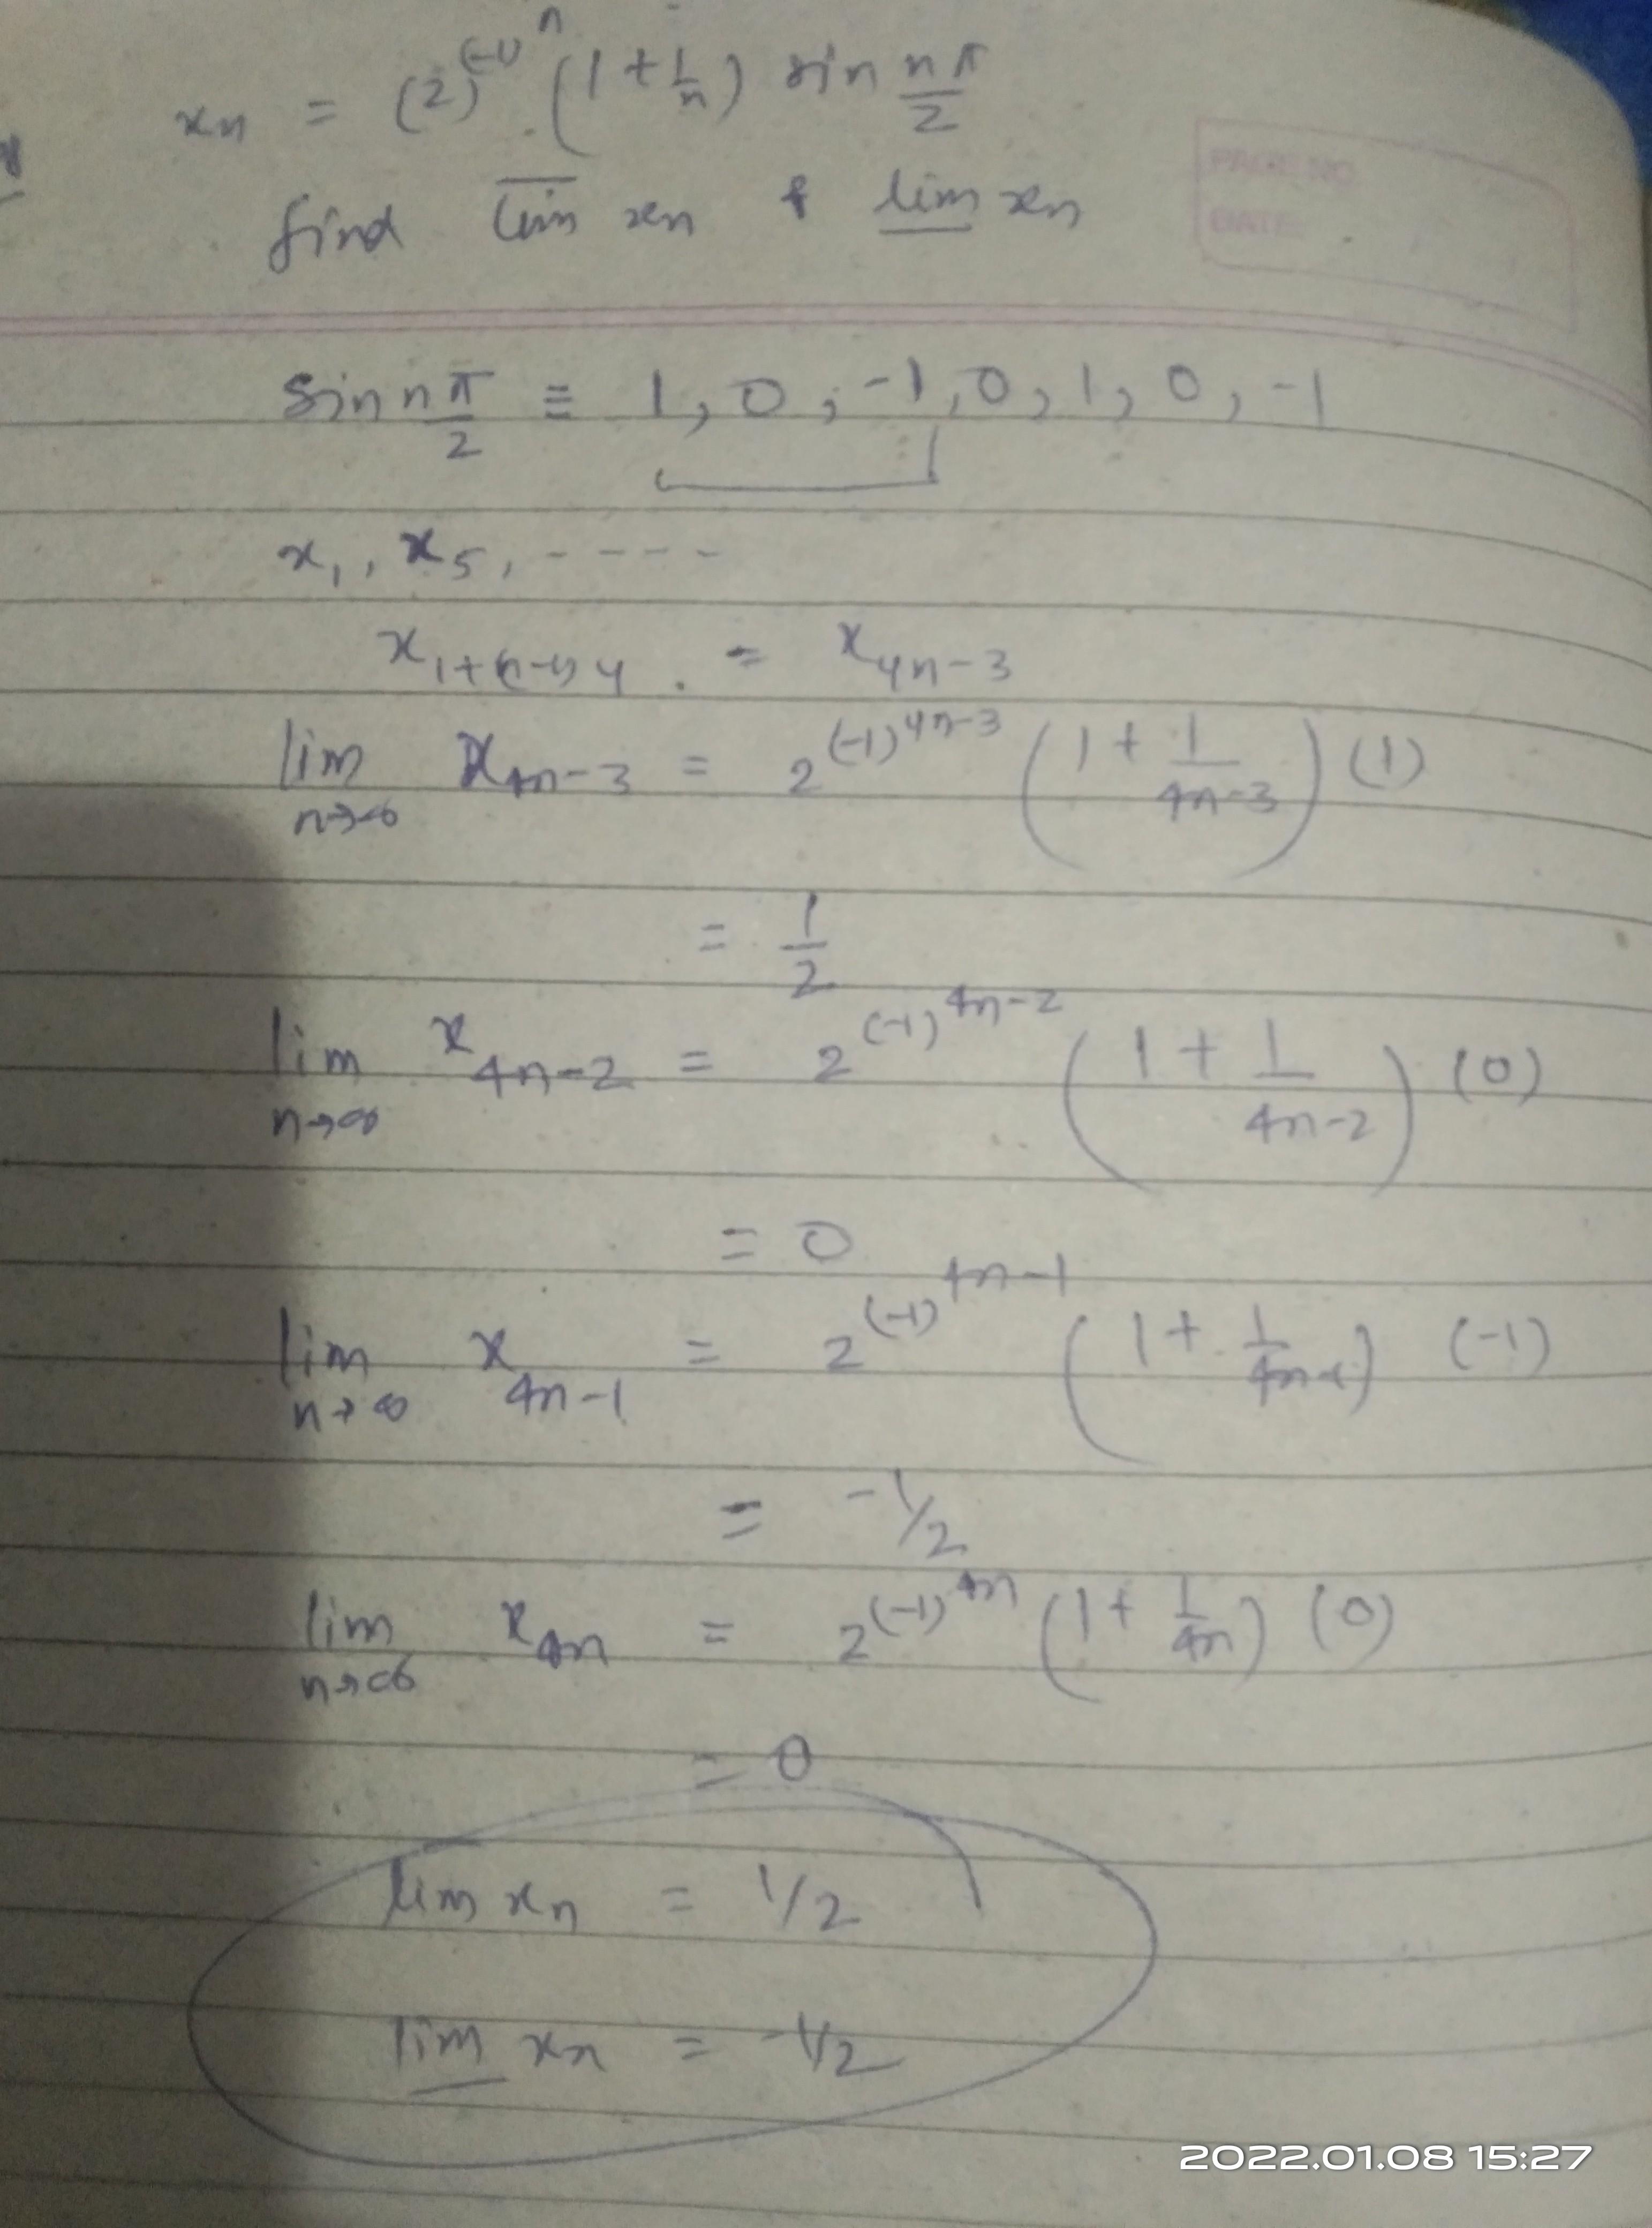 xn = (2)^(-1)^n . (1 + 1/n) sin nπ/2
find l̅i̅m̅ xn & l̲i̲m̲ xn
PAGE NO.
DATE:
sin nπ/2 ≡ 1, 0, -1, 0, 1, 0, -1
x1, x5, - - - - -
x1+(n-1)4 . = x4n-3
lim n→∞ x4n-3 = 2^(-1)^4n-3 (1 + 1/4n-3) (1)
= 1/2
lim n→∞ x4n-2 = 2^(-1)^4n-2 (1 + 1/4n-2) (0)
= 0
lim n→∞ x4n-1 = 2^(-1)^4n-1 (1 + 1/4n-1) (-1)
= -1/2
lim n→∞ x4n = 2^(-1)^4n (1 + 1/4n) (0)
= 0
lim xn = 1/2
l̲i̲m̲ xn = -1/2
2022.01.08 15:27